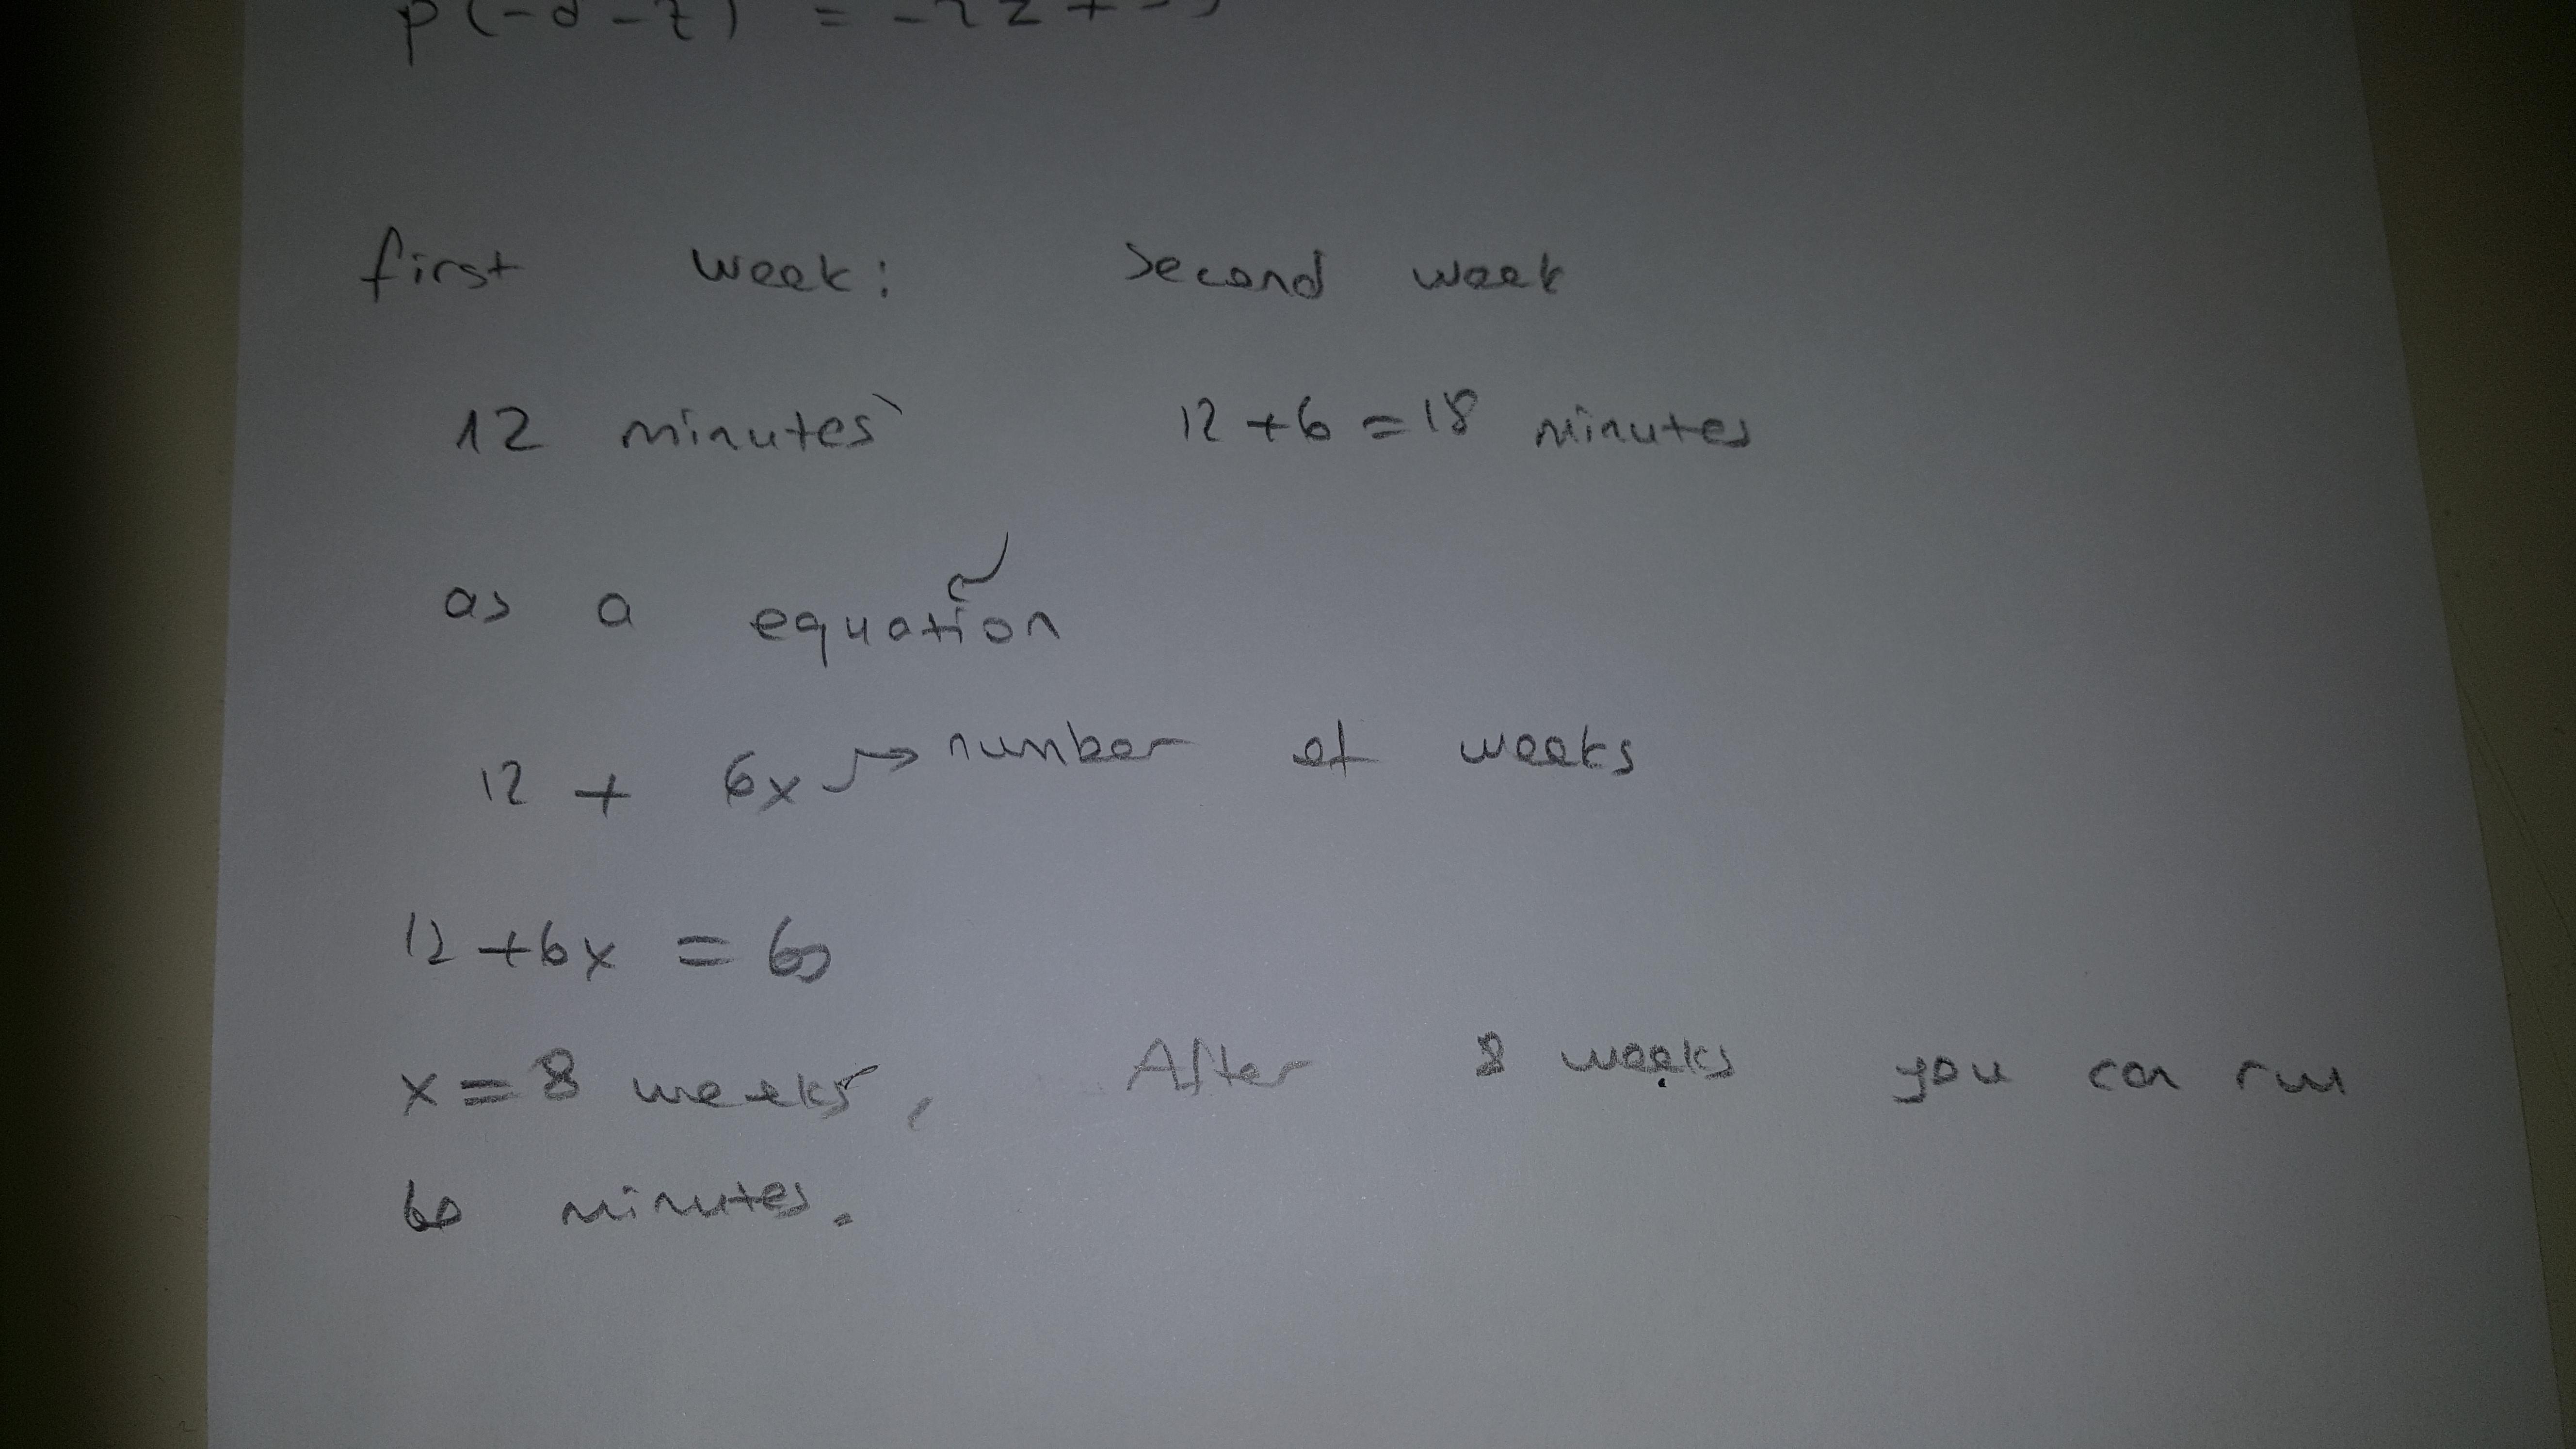 first week: second week
12 minutes 12 + 6 = 18 minutes
as a equation
12 + 6x → number of weeks
12 + 6x = 60
x = 8 weeks, After 8 weeks you can run
60 minutes.